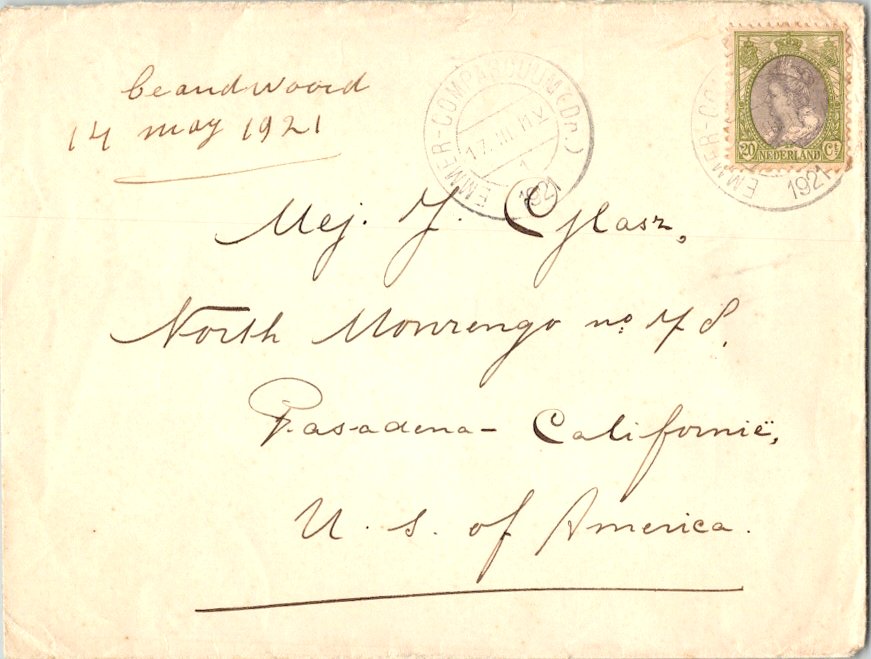 beandwoord
14 may 1921
EMMER-COMPASCUUM (Dr.)
17.III
1921
EMMER-CO
1921
20 Ct
NEDERLAND
Mej. J.
North Monrengo no 78.
Pasadena- Californië,
U. s. of America.